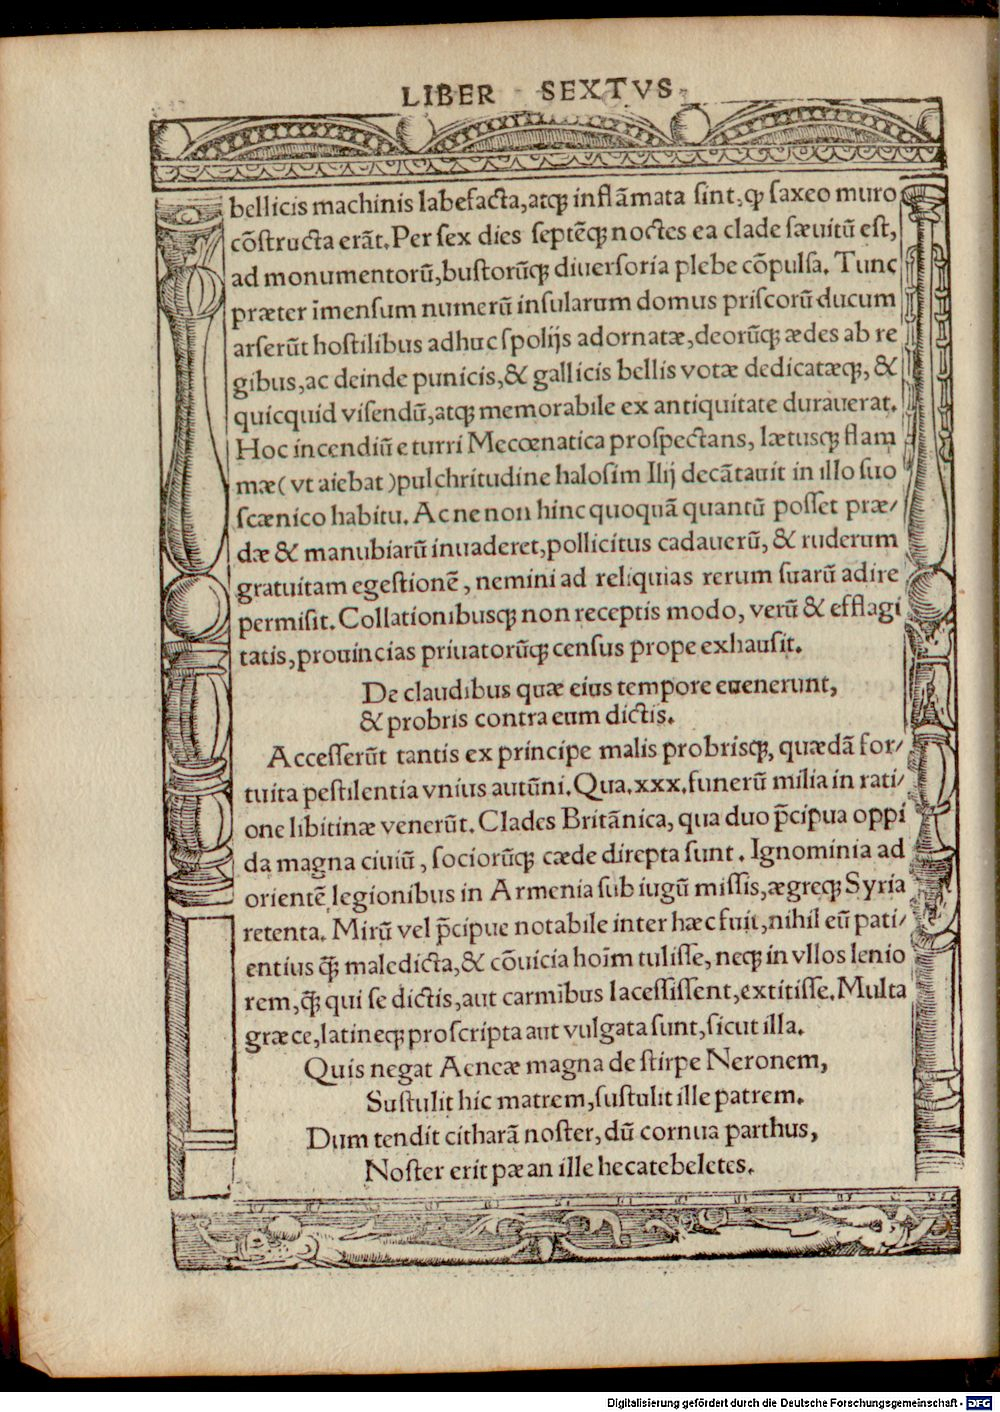 LIBER SEXTVS
bellicis machinis labefacta,atqꝫ inflãmata sint,ꝙ saxeo muro
cõstructa erãt.Per sex dies septẽqꝫ noctes ea clade sæuitũ est,
ad monumentorũ,bustorũqꝫ diuersoria plebe cõpulsa. Tunc
præter ĩmensum numerũ insularum domus priscorũ ducum
arserũt hostilibus adhuc spolijs adornatæ,deorũqꝫ ædes ab re
gibus,ac deinde punicis,& gallicis bellis votæ dedicatæqꝫ, &
quicquid visendũ,atqꝫ memorabile ex antiquitate durauerat.
Hoc incendiũ e turri Mecœnatica prospectans, lætusqꝫ flam
mæ( vt aiebat )pulchritudine halosim Ilij decãtauit in illo suo
scænico habitu. Ac ne non hinc quoquã quantũ posset præ/
dæ & manubiarũ inuaderet,pollicitus cadauerũ, & ruderum
gratuitam egestionẽ, nemini ad reliquias rerum suarũ adire
permisit. Collationibusqꝫ non receptis modo, verũ & efflagi
tatis,prouincias priuatorũqꝫ census prope exhausit.
De claudibus quæ eius tempore euenerunt,
& probris contra eum dictis.
Accesserũt tantis ex principe malis probrisqꝫ, quædã for/
tuita pestilentia vnius autũni. Qua.xxx.funerũ milia in rati/
one libitinæ venerũt. Clades Britãnica, qua duo p̃cipua oppi
da magna ciuiũ, sociorũqꝫ cæde direpta sunt. Ignominia ad
orientẽ legionibus in Armenia sub iugũ missis,ægreqꝫ Syria
retenta. Mirũ vel p̃cipue notabile inter hæc fuit,nihil eũ pati/
entius q̃ꝫ maledicta,& cõuicia hoĩm tulisse, neqꝫ in vllos lenio
rem,q̃ꝫ qui se dictis,aut carmĩbus lacessissent,extitisse.Multa
græce,latineqꝫ proscripta aut vulgata sunt,sicut illa.
Quis negat Aeneæ magna de stirpe Neronem,
Sustulit hic matrem,sustulit ille patrem.
Dum tendit citharã noster, dũ cornua parthus,
Noster erit pæan ille hecatebeletes.
Digitalisierung gefördert durch die Deutsche Forschungsgemeinschaft - DFG